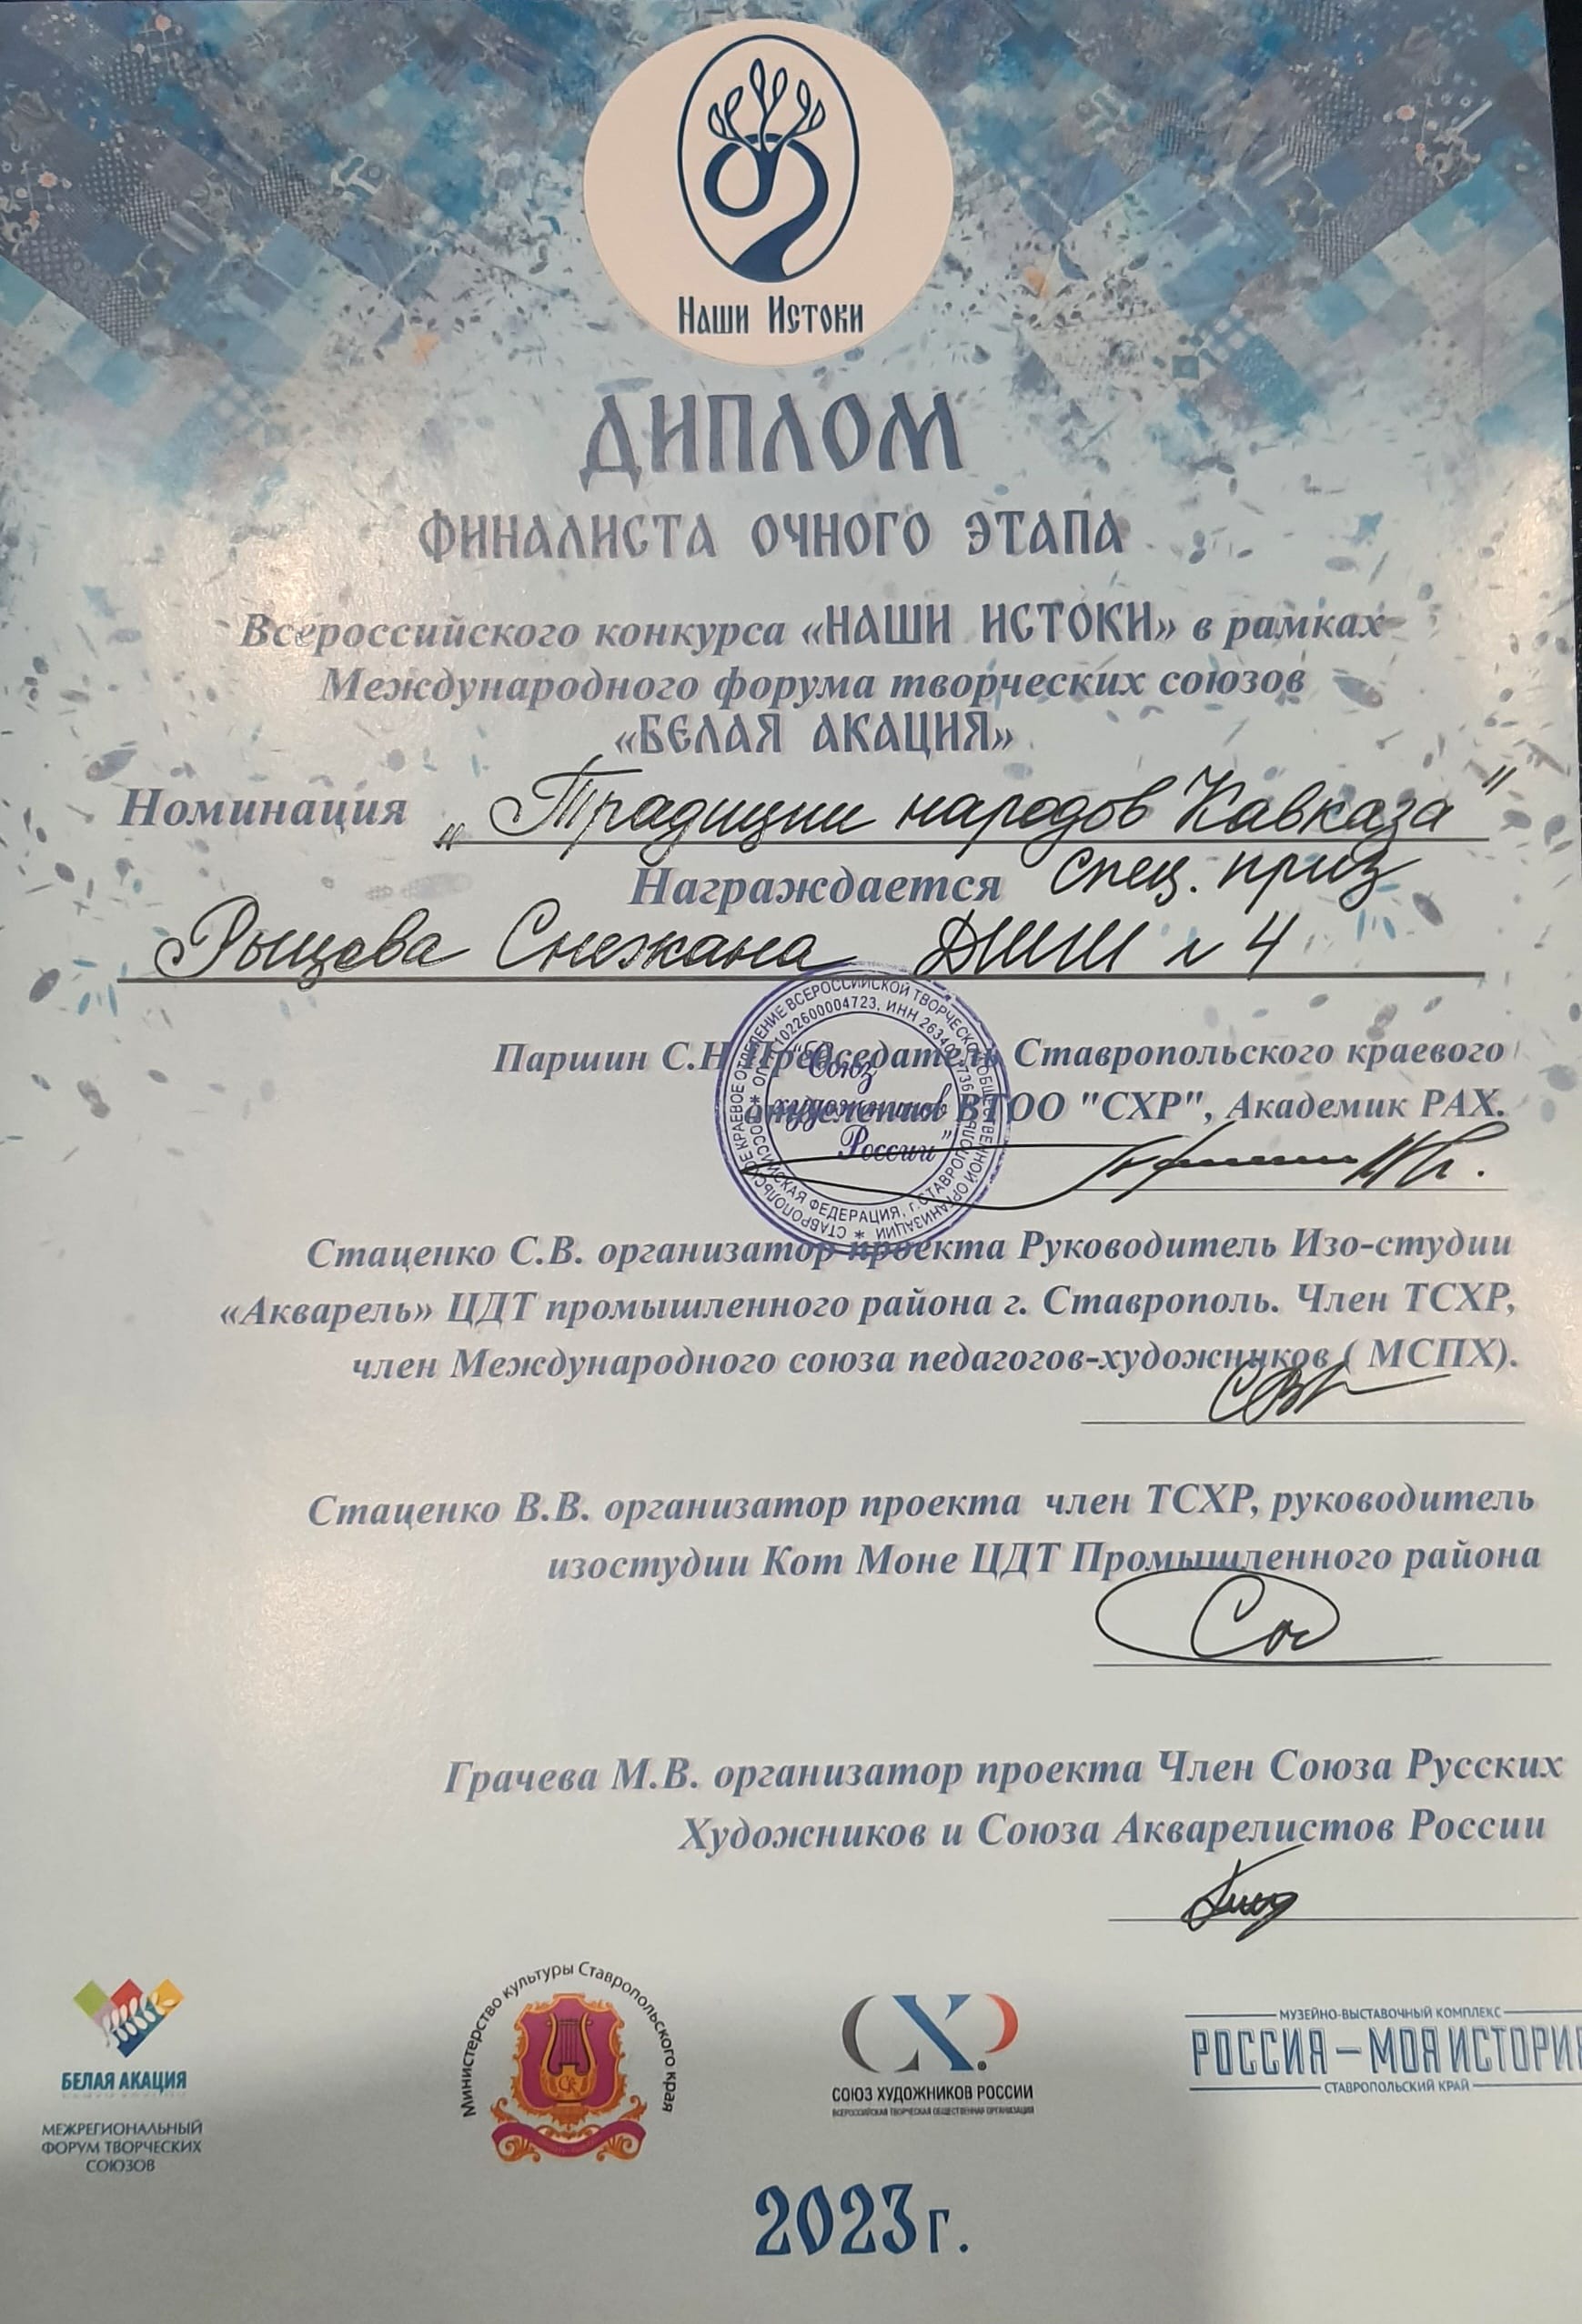 Наши Истоки
ДИПЛОМ
ФИНАЛИСТА ОЧНОГО ЭТАПА
Всероссийского конкурса «НАШИ ИСТОКИ» в рамках
Международного форума творческих союзов
«БЕЛАЯ АКАЦИЯ»
Номинация „Традиции народов Кавказа"
Награждается спец. приз
Рыщова Снежана ДШИ № 4
Паршин С.Н Председатель Ставропольского краевого
отделения ВТОО "СХР", Академик РАХ.
"Союз
художников
России"
СТАВРОПОЛЬСКОЕ КРАЕВОЕ ОТДЕЛЕНИЕ ВСЕРОССИЙСКОЙ ТВОРЧЕСКОЙ ОБЩЕСТВЕННОЙ ОРГАНИЗАЦИИ
РОССИЙСКАЯ ФЕДЕРАЦИЯ, г. СТАВРОПОЛЬ
Стаценко С.В. организатор проекта Руководитель Изо-студии
«Акварель» ЦДТ промышленного района г. Ставрополь. Член ТСХР,
член Международного союза педагогов-художников ( МСПХ).
Стаценко В.В. организатор проекта член ТСХР, руководитель
изостудии Кот Моне ЦДТ Промышленного района
Грачева М.В. организатор проекта Член Союза Русских
Художников и Союза Акварелистов России
БЕЛАЯ АКАЦИЯ
МЕЖРЕГИОНАЛЬНЫЙ
ФОРУМ ТВОРЧЕСКИХ
СОЮЗОВ
Министерство культуры Ставропольского края
СХР
СОЮЗ ХУДОЖНИКОВ РОССИИ
ВСЕРОССИЙСКАЯ ТВОРЧЕСКАЯ ОБЩЕСТВЕННАЯ ОРГАНИЗАЦИЯ
МУЗЕЙНО-ВЫСТАВОЧНЫЙ КОМПЛЕКС
РОССИЯ — МОЯ ИСТОРИЯ
СТАВРОПОЛЬСКИЙ КРАЙ
2023 г.